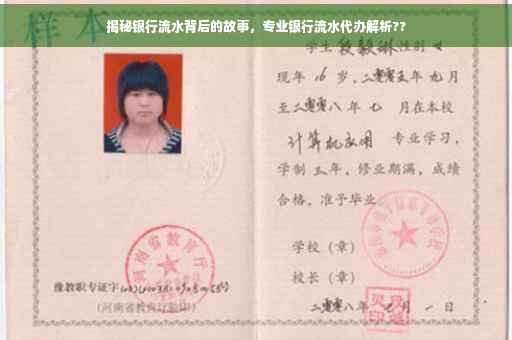 揭秘银行流水背后的故事，专业银行流水代办解析??
样本
学生 段毅琳 性别
现年 16 岁，二零零五年 九月
至二零零八年 七 月在本校
计算机应用 专业学习，
学制 三 年，修业期满，成绩
合格，准予毕业
学校（章）
校长（章）
二零零八年 七 月 一 日
河南省教育厅
豫教职专证字
(河南省教育厅验印)